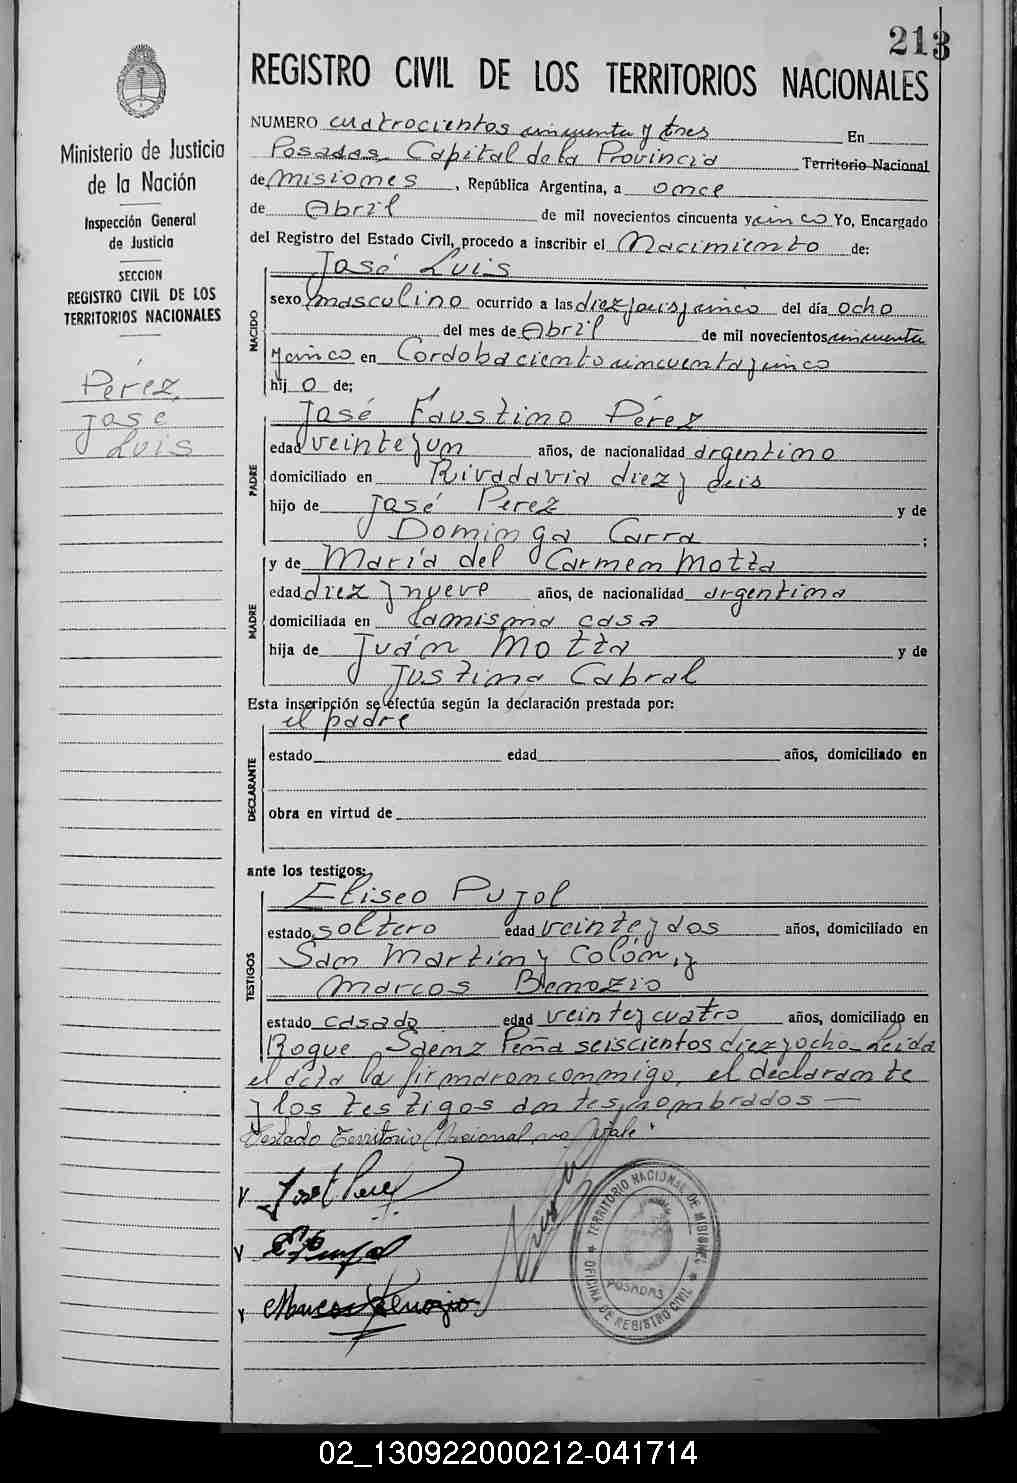 213
REGISTRO CIVIL DE LOS TERRITORIOS NACIONALES
Ministerio de Justicia
de la Nación
Inspección General
de Justicia
SECCION
REGISTRO CIVIL DE LOS
TERRITORIOS NACIONALES
Pérez,
José
Luis
NUMERO cuatrocientos cincuenta y tres En
Posadas, Capital de la Provincia Territorio Nacional
de Misiones, República Argentina, a once
de Abril de mil novecientos cincuenta y cinco Yo, Encargado
del Registro del Estado Civil, procedo a inscribir el Nacimiento de:
NACIDO
José Luis
sexo masculino ocurrido a las diez y seis y cinco del día ocho
del mes de Abril de mil novecientos cincuenta
y cinco en Cordoba ciento cincuenta y cinco
hijo de;
PADRE
José Faustino Pérez
edad veinte y un años, de nacionalidad argentino
domiciliado en Rivadavia diez y seis
hijo de José Perez y de
Dominga Carra ;
MADRE
y de María del Carmen Motta
edad diez y nueve años, de nacionalidad argentina
domiciliada en la misma casa
hija de Juán Motta y de
Justina Cabral
Esta inscripción se efectúa según la declaración prestada por:
el padre
DECLARANTE
estado edad años, domiciliado en
obra en virtud de
ante los testigos:
TESTIGOS
Eliseo Pujol
estado soltero edad veinte y dos años, domiciliado en
San Martín y Colón, y
Marcos Benozio
estado casado edad veinte y cuatro años, domiciliado en
Roque Saenz Peña seiscientos diez y ocho_ Leida
el acta la firmaron conmigo, el declarante
y los testigos antes nombrados —
Testado Territorio Nacional, no Vale
José F Perez
E Pujol
Marcos Benozio
TERRITORIO NACIONAL DE MISIONES
POSADAS
OFICINA DE REGISTRO CIVIL
02_130922000212-041714